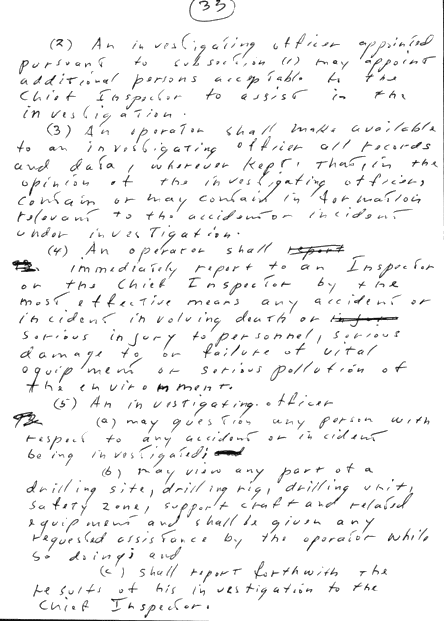 33
(2) An investigating officer appointed
pursuant to subsection (1) may appoint
additional persons acceptable to the
Chief Inspector to assist in the
investigation.
(3) An operator shall make available
to an investigating officer all records
and data, wherever kept, that, in the
opinion of the investigating officer,
contain or may contain information
relevant to the accident or incident
under investigation.
(4) An operator shall report
immediately report to an Inspector
or the Chief Inspector by the
most effective means any accident or
incident involving death or injury
serious injury to personnel, serious
damage to or failure of vital
equipment or serious pollution of
the enviromment.
(5) An investigating officer
(a) may question any person with
respect to any accident or incident
being investigated;
(b) may view any part of a
drilling site, drilling rig, drilling unit,
safety zone, support craft and related
equipment and shall be given any
requested assistance by the operator while
so doing; and
(c) shall report forthwith the
results of his investigation to the
Chief Inspector.